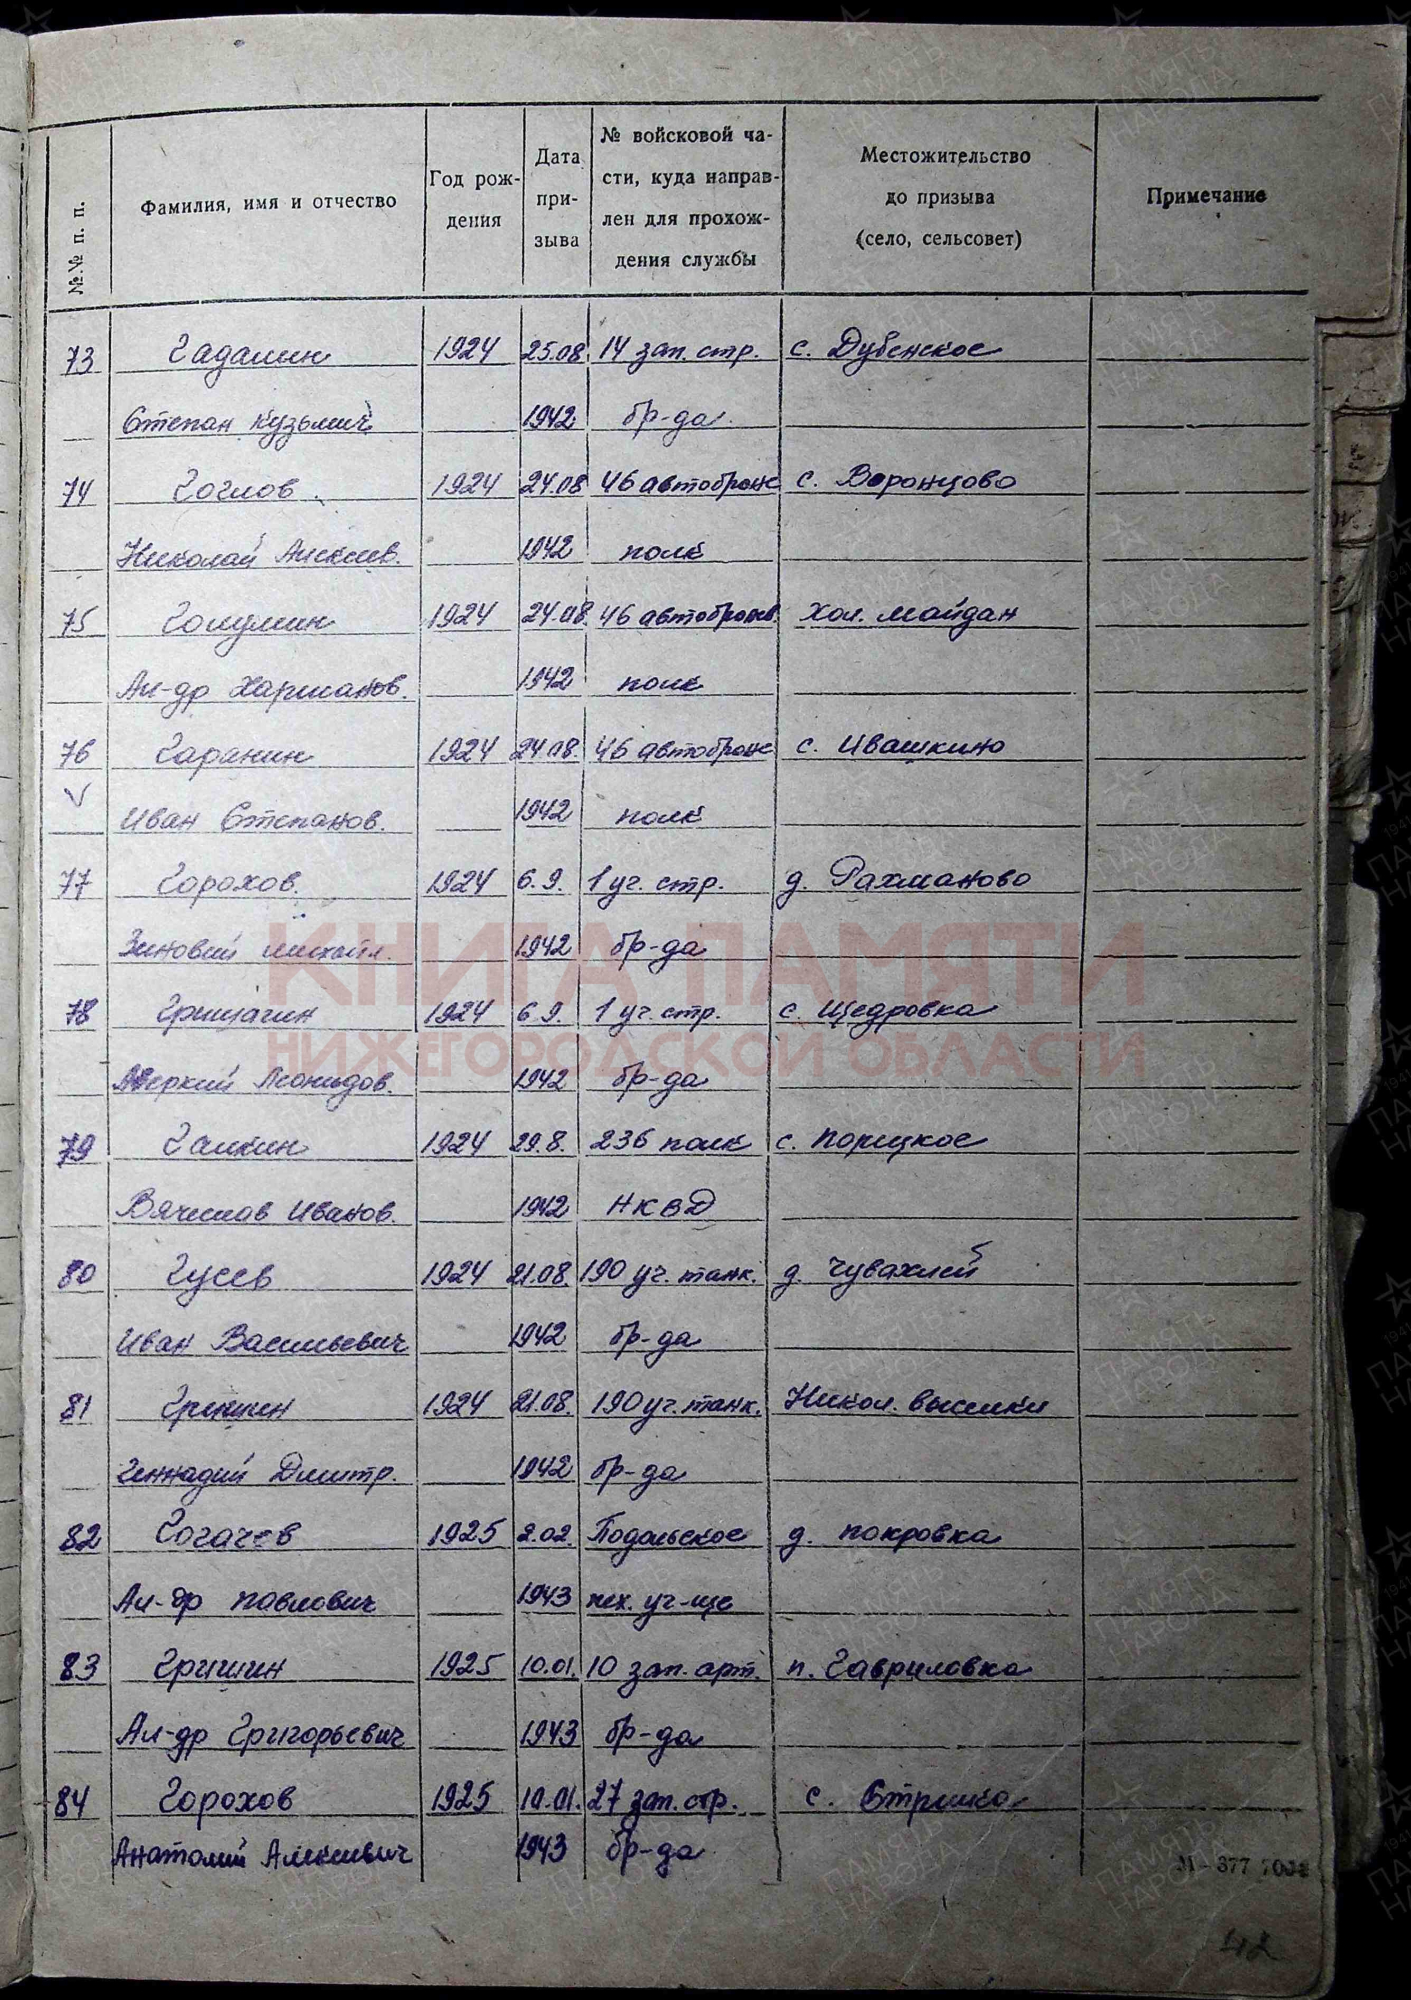 №№ п. п.
Фамилия, имя и отчество
Год рож-
дения
Дата
при-
зыва
№ войсковой ча-
сти, куда направ-
лен для прохож-
дения службы
Местожительство
до призыва
(село, сельсовет)
Примечание
73 Гадалин 1924 25.08 14 зап. стр. с. Дубенское
Степан Кузьмич 1942 бр-да
74 Гоглов 1924 24.08 46 автоброне с. Воронцово
Николай Алексеев. 1942 полк
75 1924 24.08 46 автоброне Хол. Майдан
Ал-др 1942 полк
76 Гаранин 1924 24.08 46 автоброне с. Ивашкино
Иван Степанов. 1942 полк
77 Горохов 1924 6.9. 1 уч. стр. д. Рахманово
Зиновий Михайл. 1942 бр-да
78 1924 6 9. 1 уч. стр. с. Щедровка
Аверкий Леонидов. 1942 бр-да
79 Галкин 1924 29.8. 236 полк с. Порецкое
Вячеслав Иванов. 1942 НКВД
80 Гусев 1924 21.08. 190 уч. танк. д. Чувахлей
Иван Васильевич 1942 бр-да
81 Гришин 1924 21.08. 190 уч. танк. Никол. выселки
Геннадий Дмитр. 1942 бр-да
82 Гогачев 1925 2.02. Подольское д. Покровка
Ал-др Павлович 1943 пех. уч-ще
83 Гришин 1925 10.01. 10 зап. арт. п. Гавриловка
Ал-др Григорьевич 1943 бр-да
84 Горохов 1925 10.01. 27 зап. стр. с. Стрелка
Анатолий Алексеевич 1943 бр-да
КНИГА ПАМЯТИ
НИЖЕГОРОДСКОЙ ОБЛАСТИ
ПАМЯТЬ
НАРОДА
42